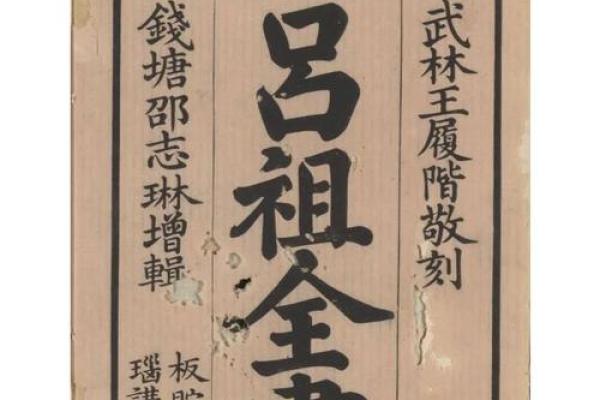 武林王履階敬刻
呂祖全書
錢塘邵志琳增輯
板貯
瑙講